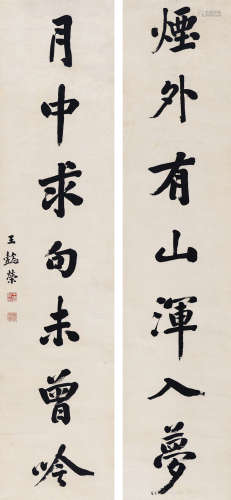 煙外有山渾入夢
月中求句未曾吟
王懿榮